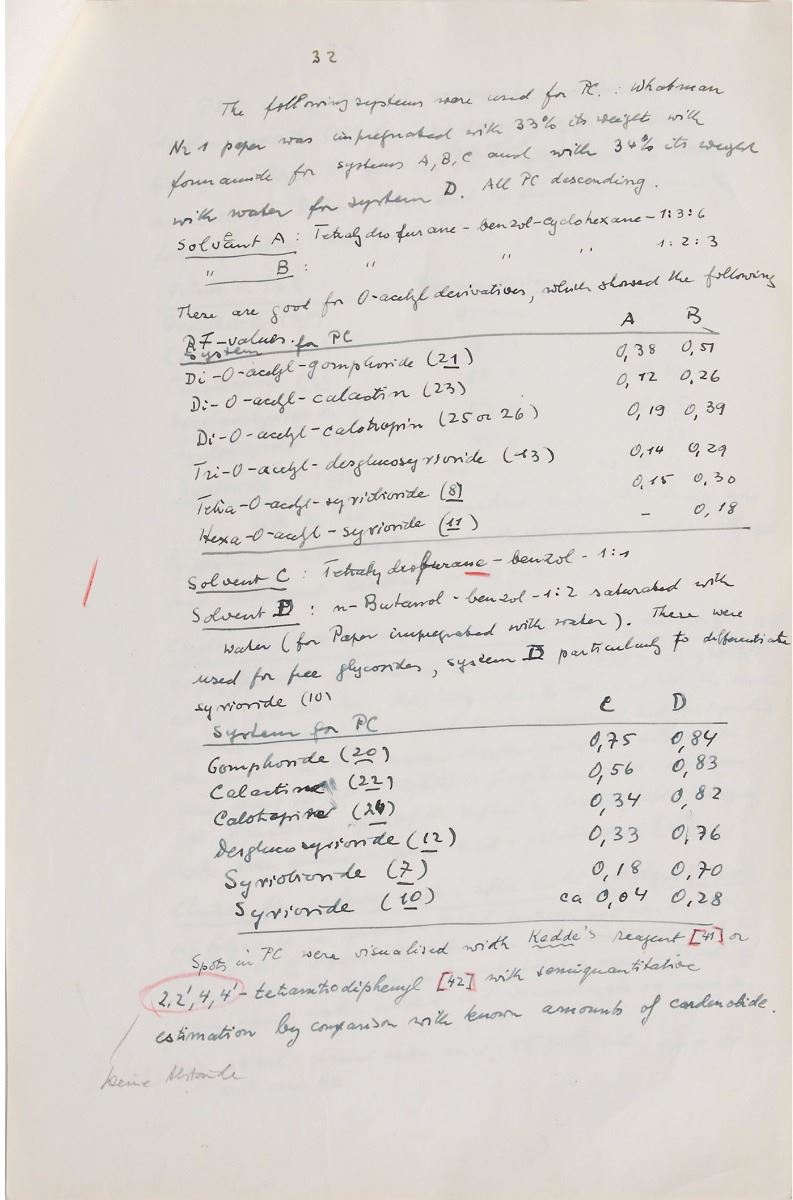 32
The following systems were used for PC. : Whatman
Nr 1 paper was impregnated with 33% its weight with
formamide for systems A, B, C and with 34% its weight
with water for system D. All PC descending.
Solvent A : Tetrahydrofurane - benzol - cyclohexane - 1:3:6
" B : " " " 1:2:3
These are good for O-acetyl derivatives, which showed the following
RF-values.
System for PC A B
Di-O-acetyl-gomphoside (21) 0,38 0,51
Di-O-acetyl-calactin (23) 0,12 0,26
Di-O-acetyl-calotropin (25 or 26) 0,19 0,39
Tri-O-acetyl-desglucosyrioside (13) 0,14 0,29
Tetra-O-acetyl-syriobioside (8) 0,15 0,30
Hexa-O-acetyl-syrioside (11) - 0,18
Solvent C : Tetrahydrofurane - benzol - 1:1
Solvent D : n-Butanol - benzol - 1:2 saturated with
water (for Paper impregnated with water). These were
used for free glycosides, system D particularly to differentiate
syrioside (10)
System for PC C D
Gomphoside (20) 0,75 0,84
Calactin (22) 0,56 0,83
Calotropin (24) 0,34 0,82
Desglucosyrioside (12) 0,33 0,76
Syriobioside (7) 0,18 0,70
Syrioside (10) ca 0,04 0,28
Spots in PC were visualised with Kedde's reagent [41] or
2,2',4,4'-tetranitrodiphenyl [42] with semiquantitative
estimation by comparison with known amounts of cardenolide.
keine Abstände